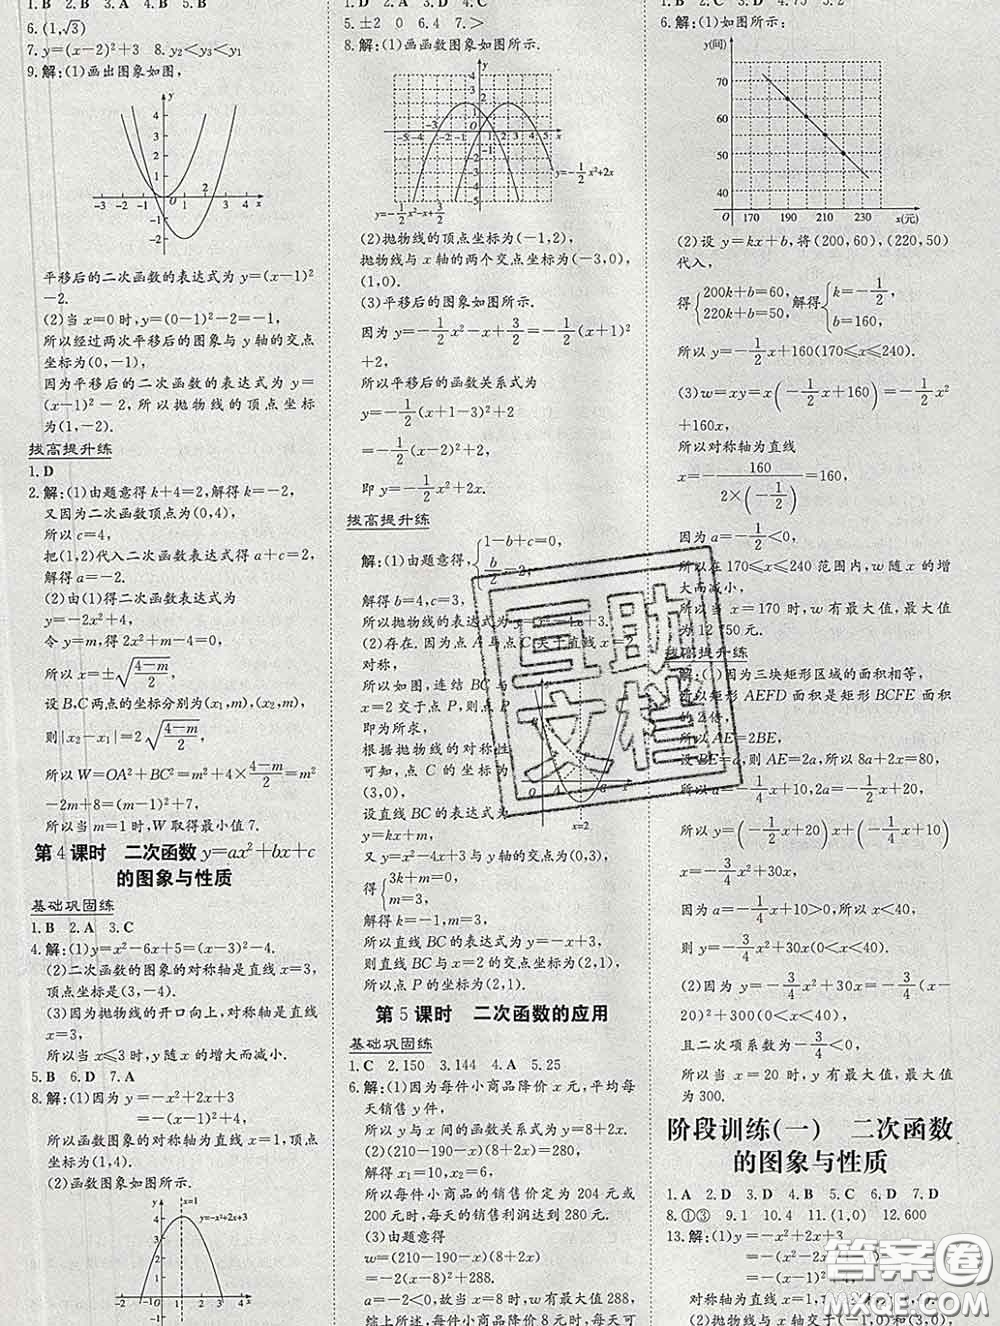 1.B 2.B 3.A 4.B 5.B
6.(1,√3)
7.y=(x-2)²+3 8.y₂<y₃<y₁
9.解:(1)画出图象如图,
平移后的二次函数的表达式为y=(x-1)²
-2.
(2)当x=0时,y=(0-1)²-2=-1,
所以经过两次平移后的图象与y轴的交点
坐标为(0,-1),
因为平移后的二次函数的表达式为y=
(x-1)²-2,所以抛物线的顶点坐标
为(1,-2).
拔高提升练
1.D
2.解:(1)由题意得k+4=2,解得k=-2,
又因为二次函数顶点为(0,4),
所以c=4,
把(1,2)代入二次函数表达式得a+c=2,
解得a=-2.
(2)由(1)得二次函数表达式为
y=-2x²+4,
令y=m,得2x²+m-4=0,
所以x=±√((4-m)/2),
设B,C两点的坐标分别为(x₁,m),(x₂,m),
则|x₂-x₁|=2√((4-m)/2),
所以W=OA²+BC²=m²+4×(4-m)/2=m²
-2m+8=(m-1)²+7,
所以当m=1时,W取得最小值7.
第4课时 二次函数y=ax²+bx+c
的图象与性质
基础巩固练
1.B 2.A 3.C
4.解:(1)y=x²-6x+5=(x-3)²-4.
(2)二次函数的图象的对称轴是直线x=3,
顶点坐标是(3,-4).
(3)因为抛物线的开口向上,对称轴是直线
x=3,
所以当x≤3时,y随x的增大而减小.
5.B 6.D 7.A
8.解:(1)因为y=-x²+2x+3
=-(x-1)²+4,
所以图象的对称轴为直线x=1,顶点坐标
为(1,4).
(2)函数图象如图所示.
x=1
y=-x²+2x+3
5.±2 0 6.4 7.>
8.解:(1)画函数图象如图所示.
y=-1/2x²+2x
y=-1/2x²-x+3/2
(2)抛物线的顶点坐标为(-1,2),
抛物线与x轴的两个交点坐标为(-3,0),
(1,0).
(3)平移后的图象如图所示.
因为y=-1/2x²-x+3/2=-1/2(x+1)²
+2,
所以平移后的函数关系式为
y=-1/2(x+1-3)²+2
=-1/2(x-2)²+2,
即y=-1/2x²+2x.
拔高提升练
解:(1)由题意得,{1-b+c=0, b/2=2,
解得b=4,c=3,
所以抛物线的表达式为y=x²-4x+3.
(2)存在.因为点A与点C关于直线x=2
对称,
所以如图,连结BC与
x=2交于点P,则点P
即为所求,
根据抛物线的对称性
可知,点C的坐标为
(3,0),
设直线BC的表达式为
y=kx+m,
x=2
又y=x²-4x+3与y轴的交点为(0,3),
得{3k+m=0, m=3,
解得k=-1,m=3,
所以直线BC的表达式为y=-x+3,
则直线BC与x=2的交点坐标为(2,1),
所以点P的坐标为(2,1).
第5课时 二次函数的应用
基础巩固练
1.C 2.150 3.144 4.A 5.25
6.解:(1)因为每件小商品降价x元,平均每
天销售y件,
所以y与x间的函数关系式为y=8+2x.
(2)(210-190-x)(8+2x)=280,
解得x₁=10,x₂=6,
所以每件小商品的销售价定为204元或
200元时,每天的销售利润达到280元.
(3)由题意得
w=(210-190-x)(8+2x)
=-2(x-8)²+288.
a=-2<0,故当x=8时,w有最大值288,
6.解:(1)如图所示.
y(间)
70
60
50
40
30
170 190 210 230 x(元)
(2)设y=kx+b,将(200,60),(220,50)
代入,
得{200k+b=60, 220k+b=50, 解得{k=-1/2, b=160,
所以y=-1/2x+160(170≤x≤240).
(3)w=xy=x(-1/2x+160)=-1/2x²
+160x,
所以对称轴为直线
x=-160/(2×(-1/2))=160,
因为a=-1/2<0,
所以在170≤x≤240范围内,w随x的增
大而减小,
所以当x=170时,w有最大值,最大值
为12 750元.
拔高提升练
解:(1)因为三块矩形区域的面积相等,
所以矩形AEFD面积是矩形BCFE面积
的2倍,
所以AE=2BE,
设BE=a,则AE=2a,所以8a+2x=80,
所以a=-1/4x+10,2a=-1/2x+20,
所以y=(-1/2x+20)x+(-1/4x+10)x
=-3/4x²+30x,
因为a=-1/4x+10>0,所以x<40,
则y=-3/4x²+30x(0<x<40).
(2)因为y=-3/4x²+30x=-3/4(x-
20)²+300(0<x<40),
且二次项系数为-3/4<0,
所以当x=20时,y有最大值,最大值
为300.
阶段训练(一) 二次函数
的图象与性质
1.A 2.D 3.D 4.B 5.C 6.D 7.D
8.①③ 9.1 10.4 11.(1,0) 12.600
13.解:(1)y=-x²+2x+3
对称轴为直线x=1,
互助文档
答案圈
MXQE.COM